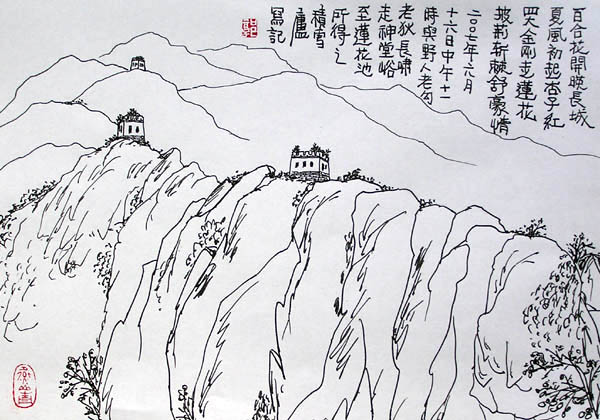 百合花開晚長城
夏風初起杏子紅
四大金剛走蓮花
披荊斬棘舒豪情
二〇〇七年六月
十六日中午十一
時與野人老勾
老狄長嘯
走神堂峪
至蓮花池
所得之
積雪
廬
寫記